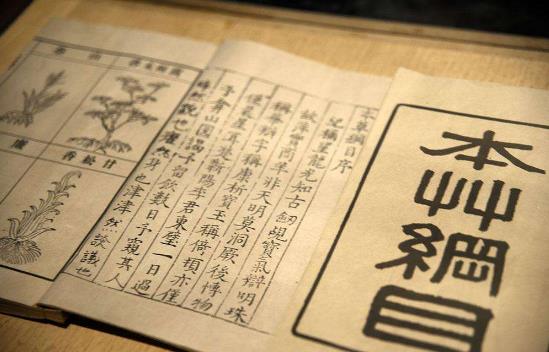 本艸綱目
本草綱目序
紀稱望龍光知古劒覘寳氣辯明珠
故萍實商羊非天明莫洞厥後博物
稱華辯字稱康析寳玉稱倚頓亦僅
僅晨星耳楚蘄陽李君東璧一日過
予弇山園謁予留飲數日予窺其人
睟然貌也癯然身也津津然譚議也
甘松香